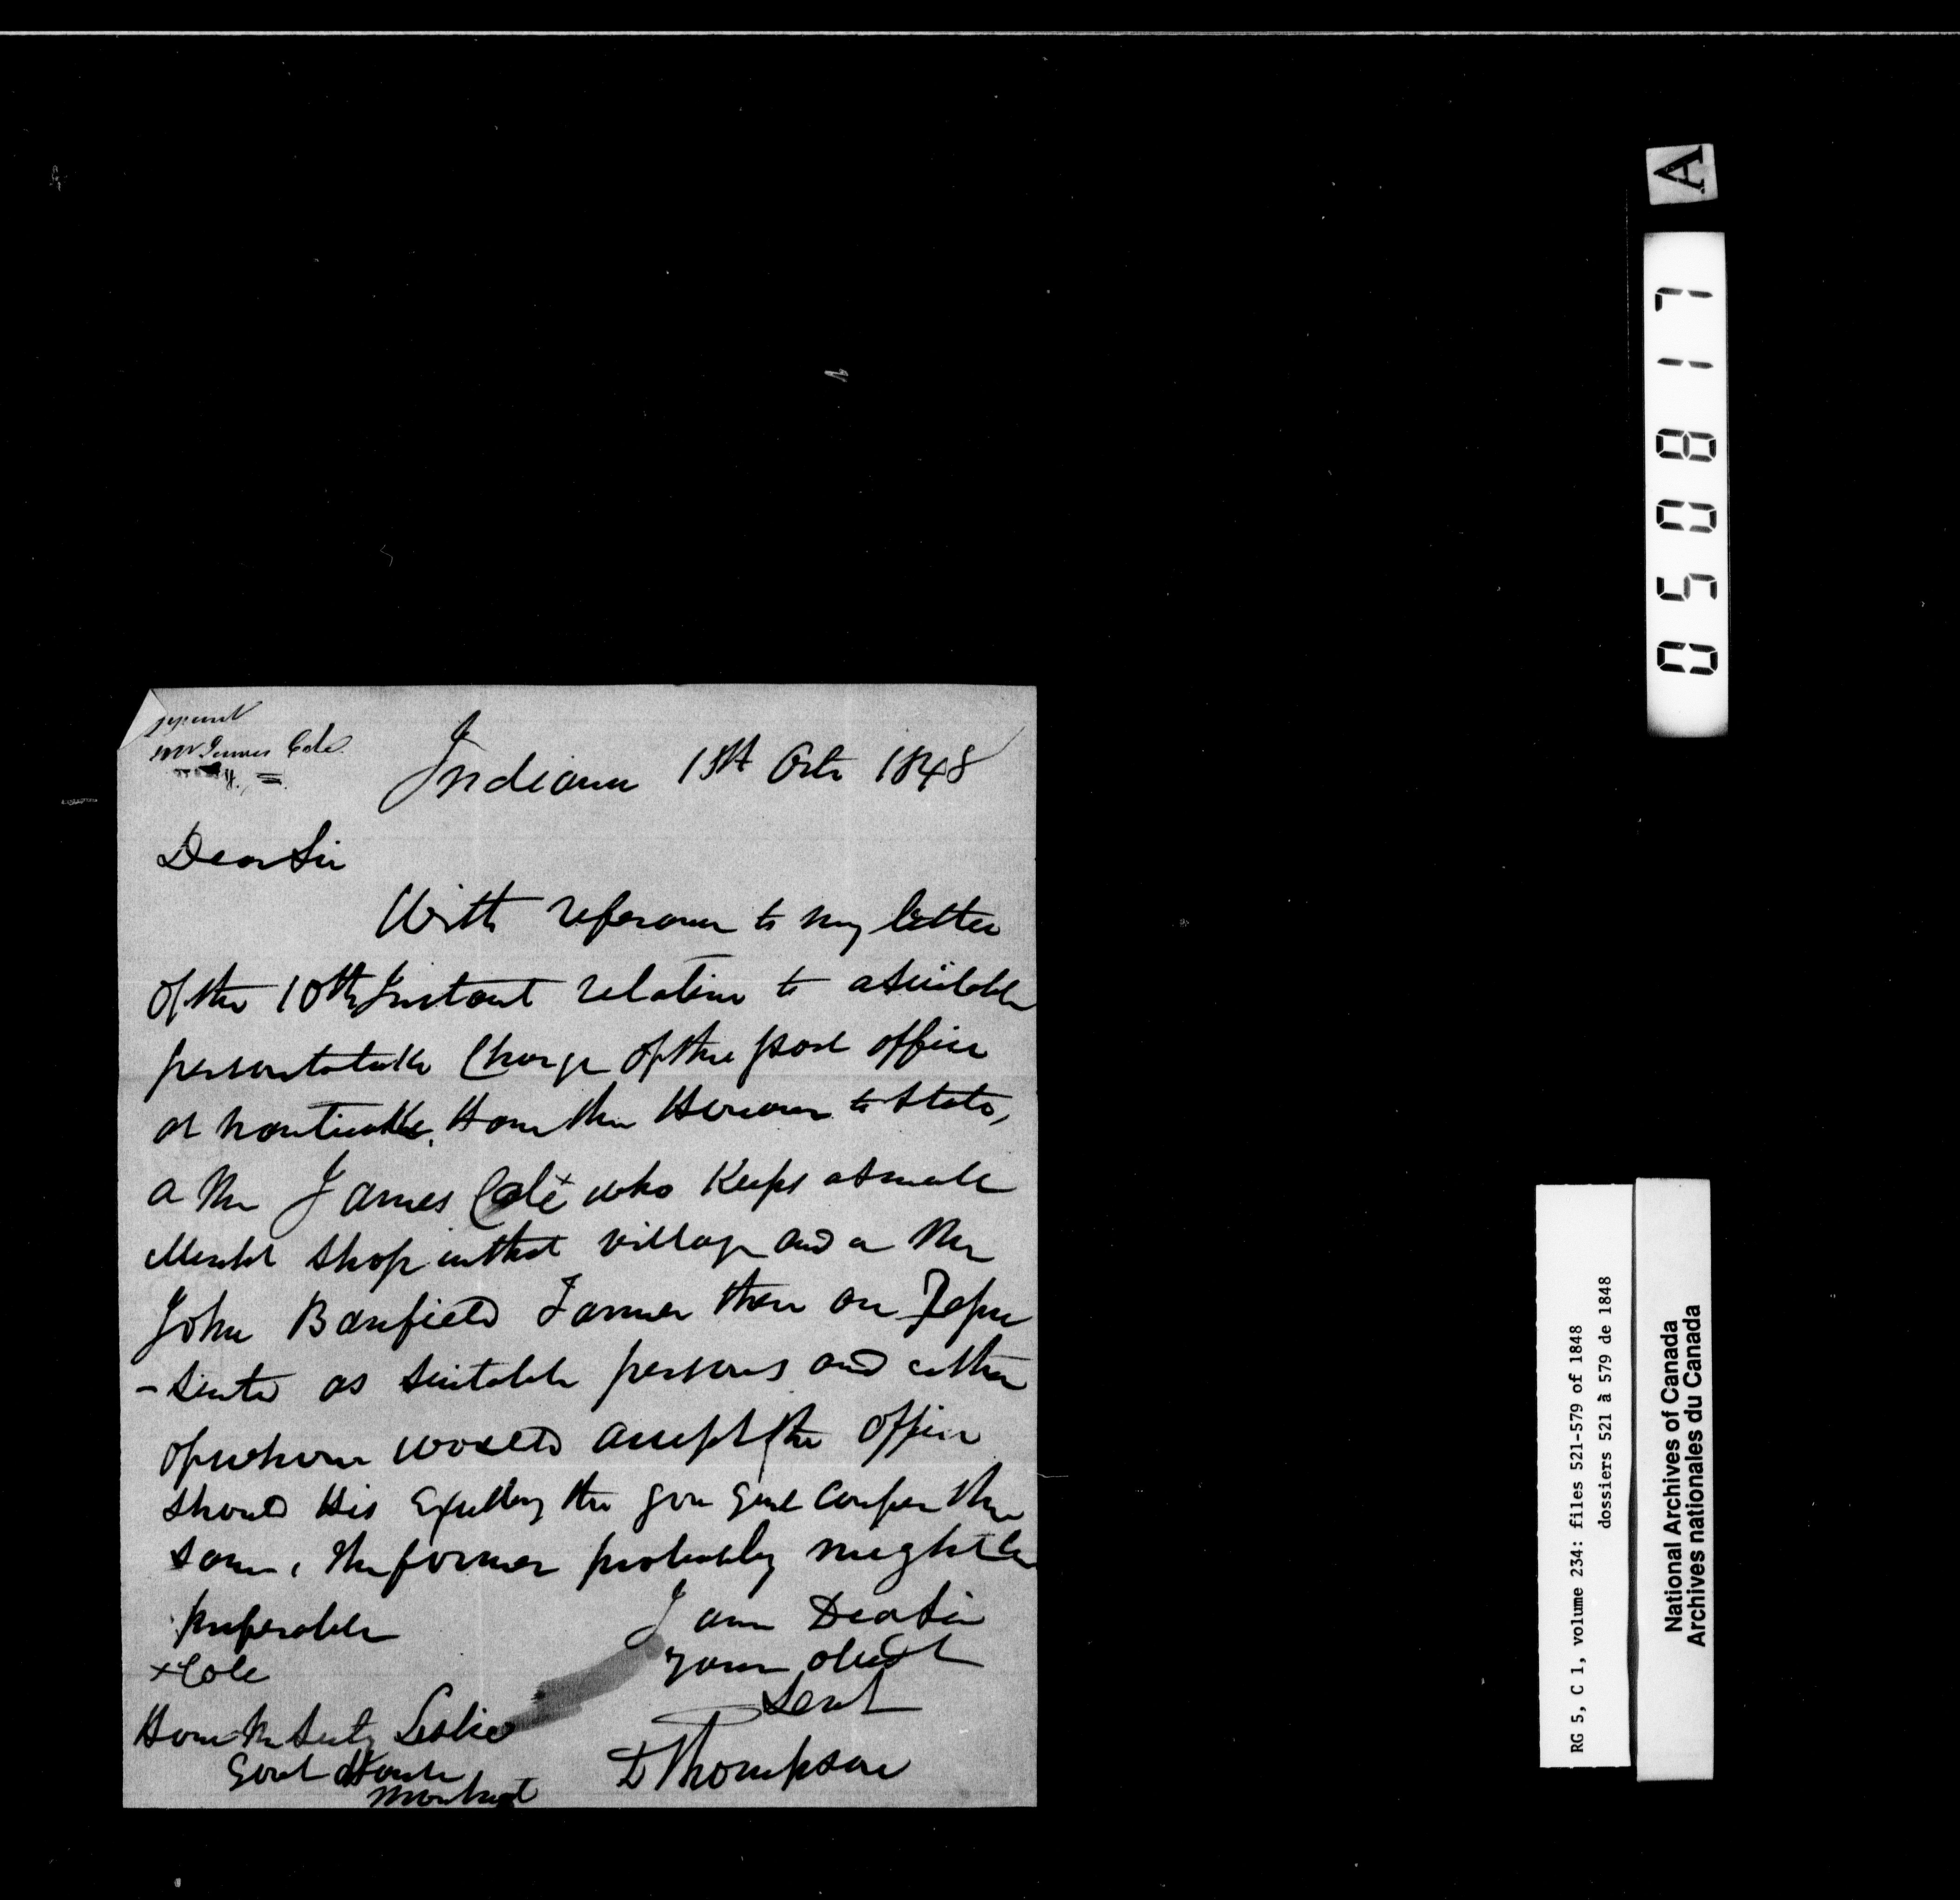 Mr James Cole
Indiana 15th Octr 1848
Dear Sir
With reference to my letter
of the 10th Instant relative to a Suitable
person to take Charge of the post office
at Nanticoke, Have the Honour to State,
a Mr James Cole x who Keeps a Small
Mercht Shop in that village and a Mr
John Banfield Farmer there are Repre
-sented as Suitable persons and either
of whom would accept the office
Should His Excellency the Gov Genl Confer the
Same, the former probably might be
preferable
I am Dear Sir
your obedt
Servt
D Thompson
x Cole
Honl Mr Secty Leslie
Govt House
Montreal
A
050817
RG 5, C 1, volume 234: files 521-579 of 1848
dossiers 521 à 579 de 1848
National Archives of Canada
Archives nationales du Canada